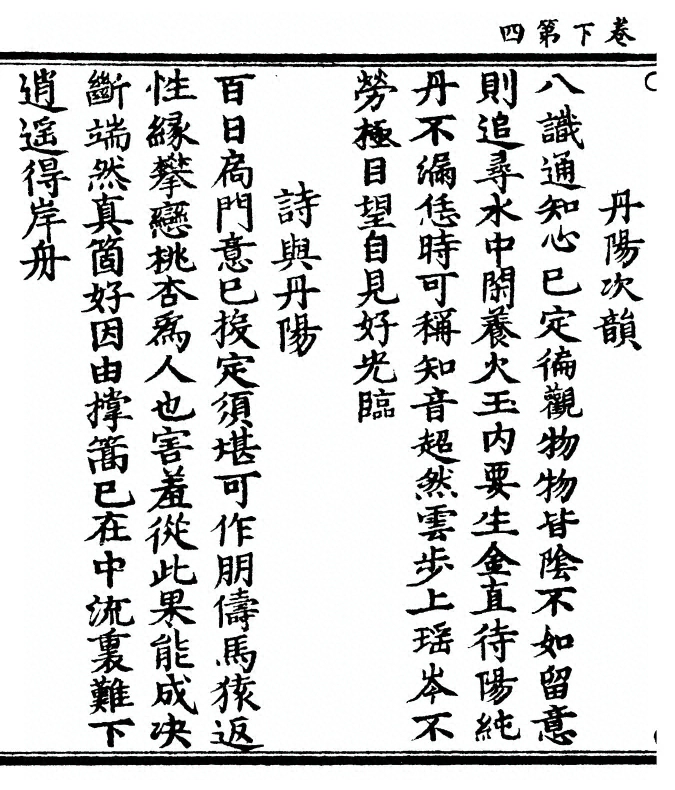 卷下第四
丹陽次韻
八識通知心已定徧觀物物皆陰不如留意
則追尋水中閑養火玉内要生金直待陽純
丹不漏恁時可稱知音超然雲步上瑶岑不
勞極目望自見好光臨
詩與丹陽
百日扃門意已投定須堪可作朋儔馬猿返
性緣攀戀桃杏爲人也害羞從此果能成决
斷端然真箇好因由撑篙已在中流裏難下
逍遥得岸舟